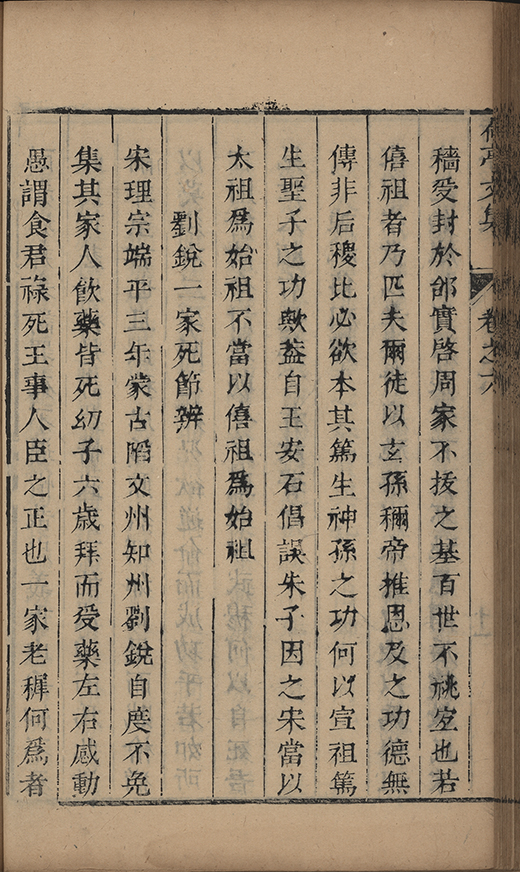 文集 卷之六
穡受封於邰實啓周家不拔之基百世不祧宜也若
僖祖者乃匹夫爾徒以玄孫稱帝推恩及之功德無
傳非后稷比必欲本其篤生神孫之功何以宣祖篤
生聖子之功歟葢自王安石倡誤朱子因之宋當以
太祖爲始祖不當以僖祖爲始祖
劉銳一家死節辨
宋理宗端平三年蒙古䧟文州知州劉銳自度不免
集其家人飮藥皆死幼子六歲拜而受藥左右感動
愚謂食君祿死王事人臣之正也一家老穉何爲者